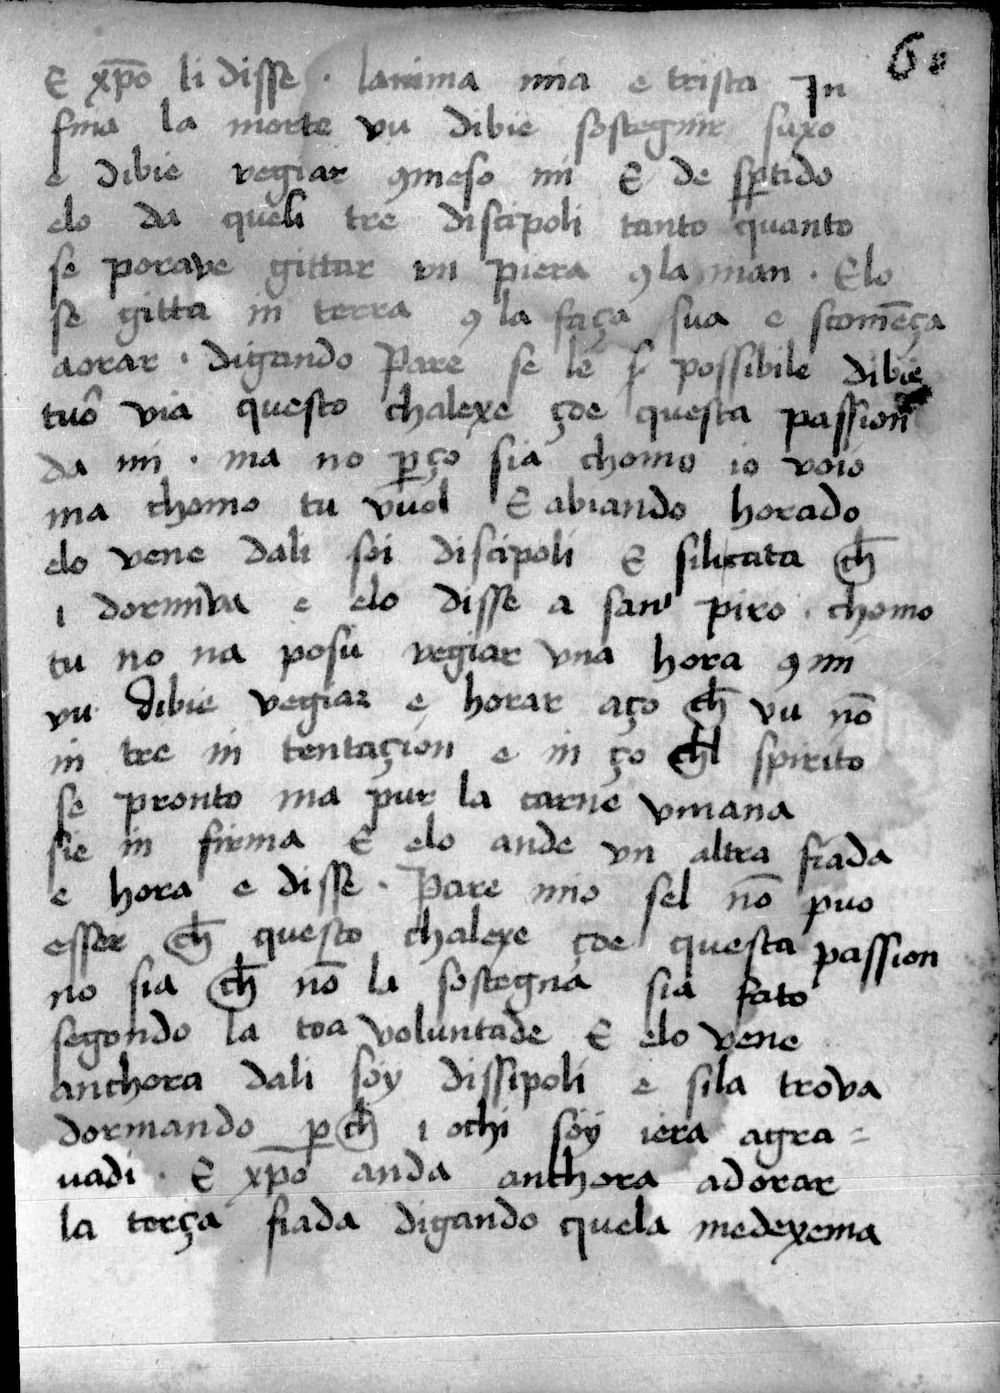 60
E xp̄o li disse · lanima mia e trista In
fina la morte vu dibie sostegnir suxo
e dibie vegiar ꝯmeso mi E de sp̱tido
elo da queli tre discipoli tanto quanto
se porave gittar vn piera ꝯ la man · Elo
se gitta in terra ꝯ la faça sua e scomēça
aorar · digando Pare se le possibile dibie
tuō via questo chalexe çoe questa passion
da mi · ma no ꝑço sia chomo io voio
ma chomo tu vuol E abiando horado
elo vene dali soi discipoli E si catta ch̄
i dormiva e elo disse a san piro · chomo
tu no na posu vegiar vna hora ꝯ mi
vu dibie vegiar e horar aço ch̄ vu nō
in tre in tentaçion e in ço ch̄l spirito
se pronto ma pur la carne vmana
sie in firma E elo ande vn altra fiada
e hora e disse · Pare mio sel nō puo
esser ch̄ questo chalexe çoe questa passion
no sia ch̄ nō la sostegna sia fato
segondo la toa voluntade E elo vene
anchora dali soy dissipoli e sila trova
dormando ꝑch̄ i ochi soy iera agra=
uadi · E xp̄o anda anchora adorar
la terça fiada digando quela medexema